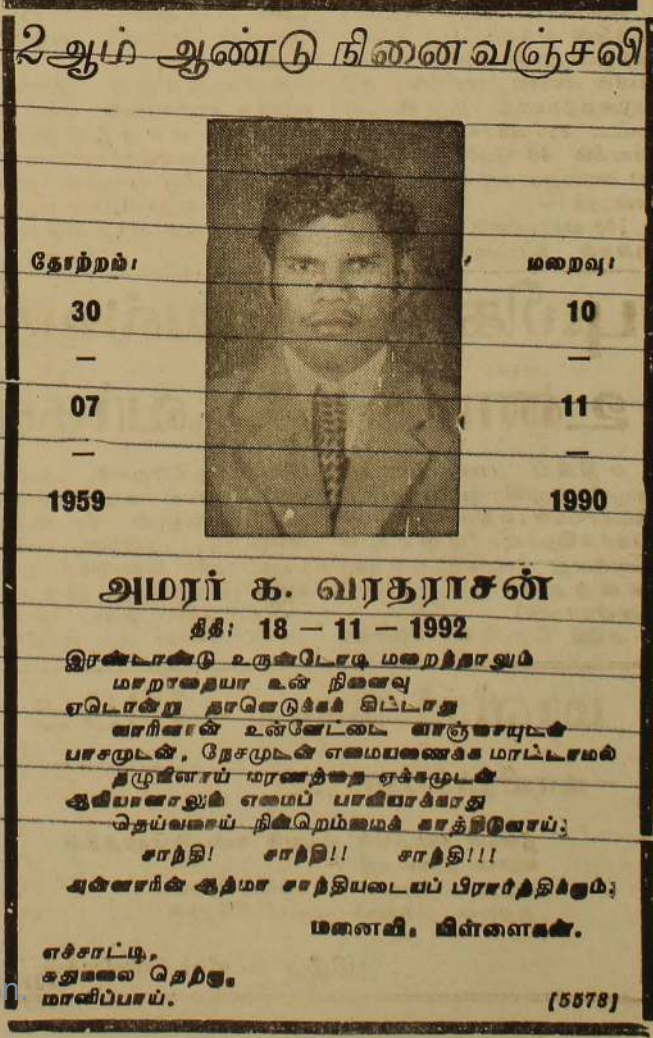 2ஆம் ஆண்டு நினைவஞ்சலி
தோற்றம்:
30
—
07
—
1959
மறைவு:
10
—
11
—
1990
அமரர் க. வரதராசன்
திதி: 18 — 11 — 1992
இரண்டாண்டு உருண்டோடி மறைந்தாலும்
மாறாதையா உன் நினைவு
ஏடொன்று தானெடுக்கக் கிட்டாது
வாரினான் உன்னேட்டை வாஞ்சையுடன்
பாசமுடன், நேசமுடன் எமையணைக்க மாட்டாமல்
தழுவினாய் மரணத்தை ஏக்கமுடன்
ஆவியானாலும் எமைப் பாவியாக்காது
தெய்வமாய் நின்றெம்மைக் காத்திடுவாய்;
சாந்தி! சாந்தி!! சாந்தி!!!
அன்னாரின் ஆத்மா சாந்தியடையப் பிரார்த்திக்கும்;
மனைவி, பிள்ளைகள்.
எச்சாட்டி,
சுதுமலை தெற்கு,
மானிப்பாய்.
[5578]